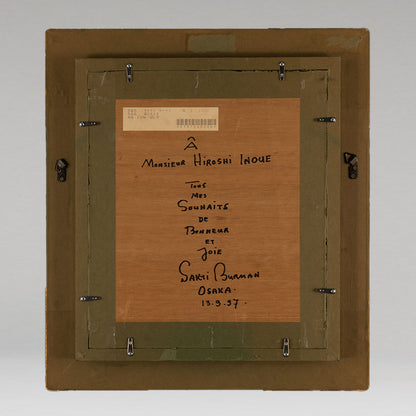 À
MONSIEUR HIROSHI INOUE
TOUS
MES
SOUHAITS
DE
BONHEUR
ET
JOIE
SAKTI BURMAN
OSAKA.
13.9.97.